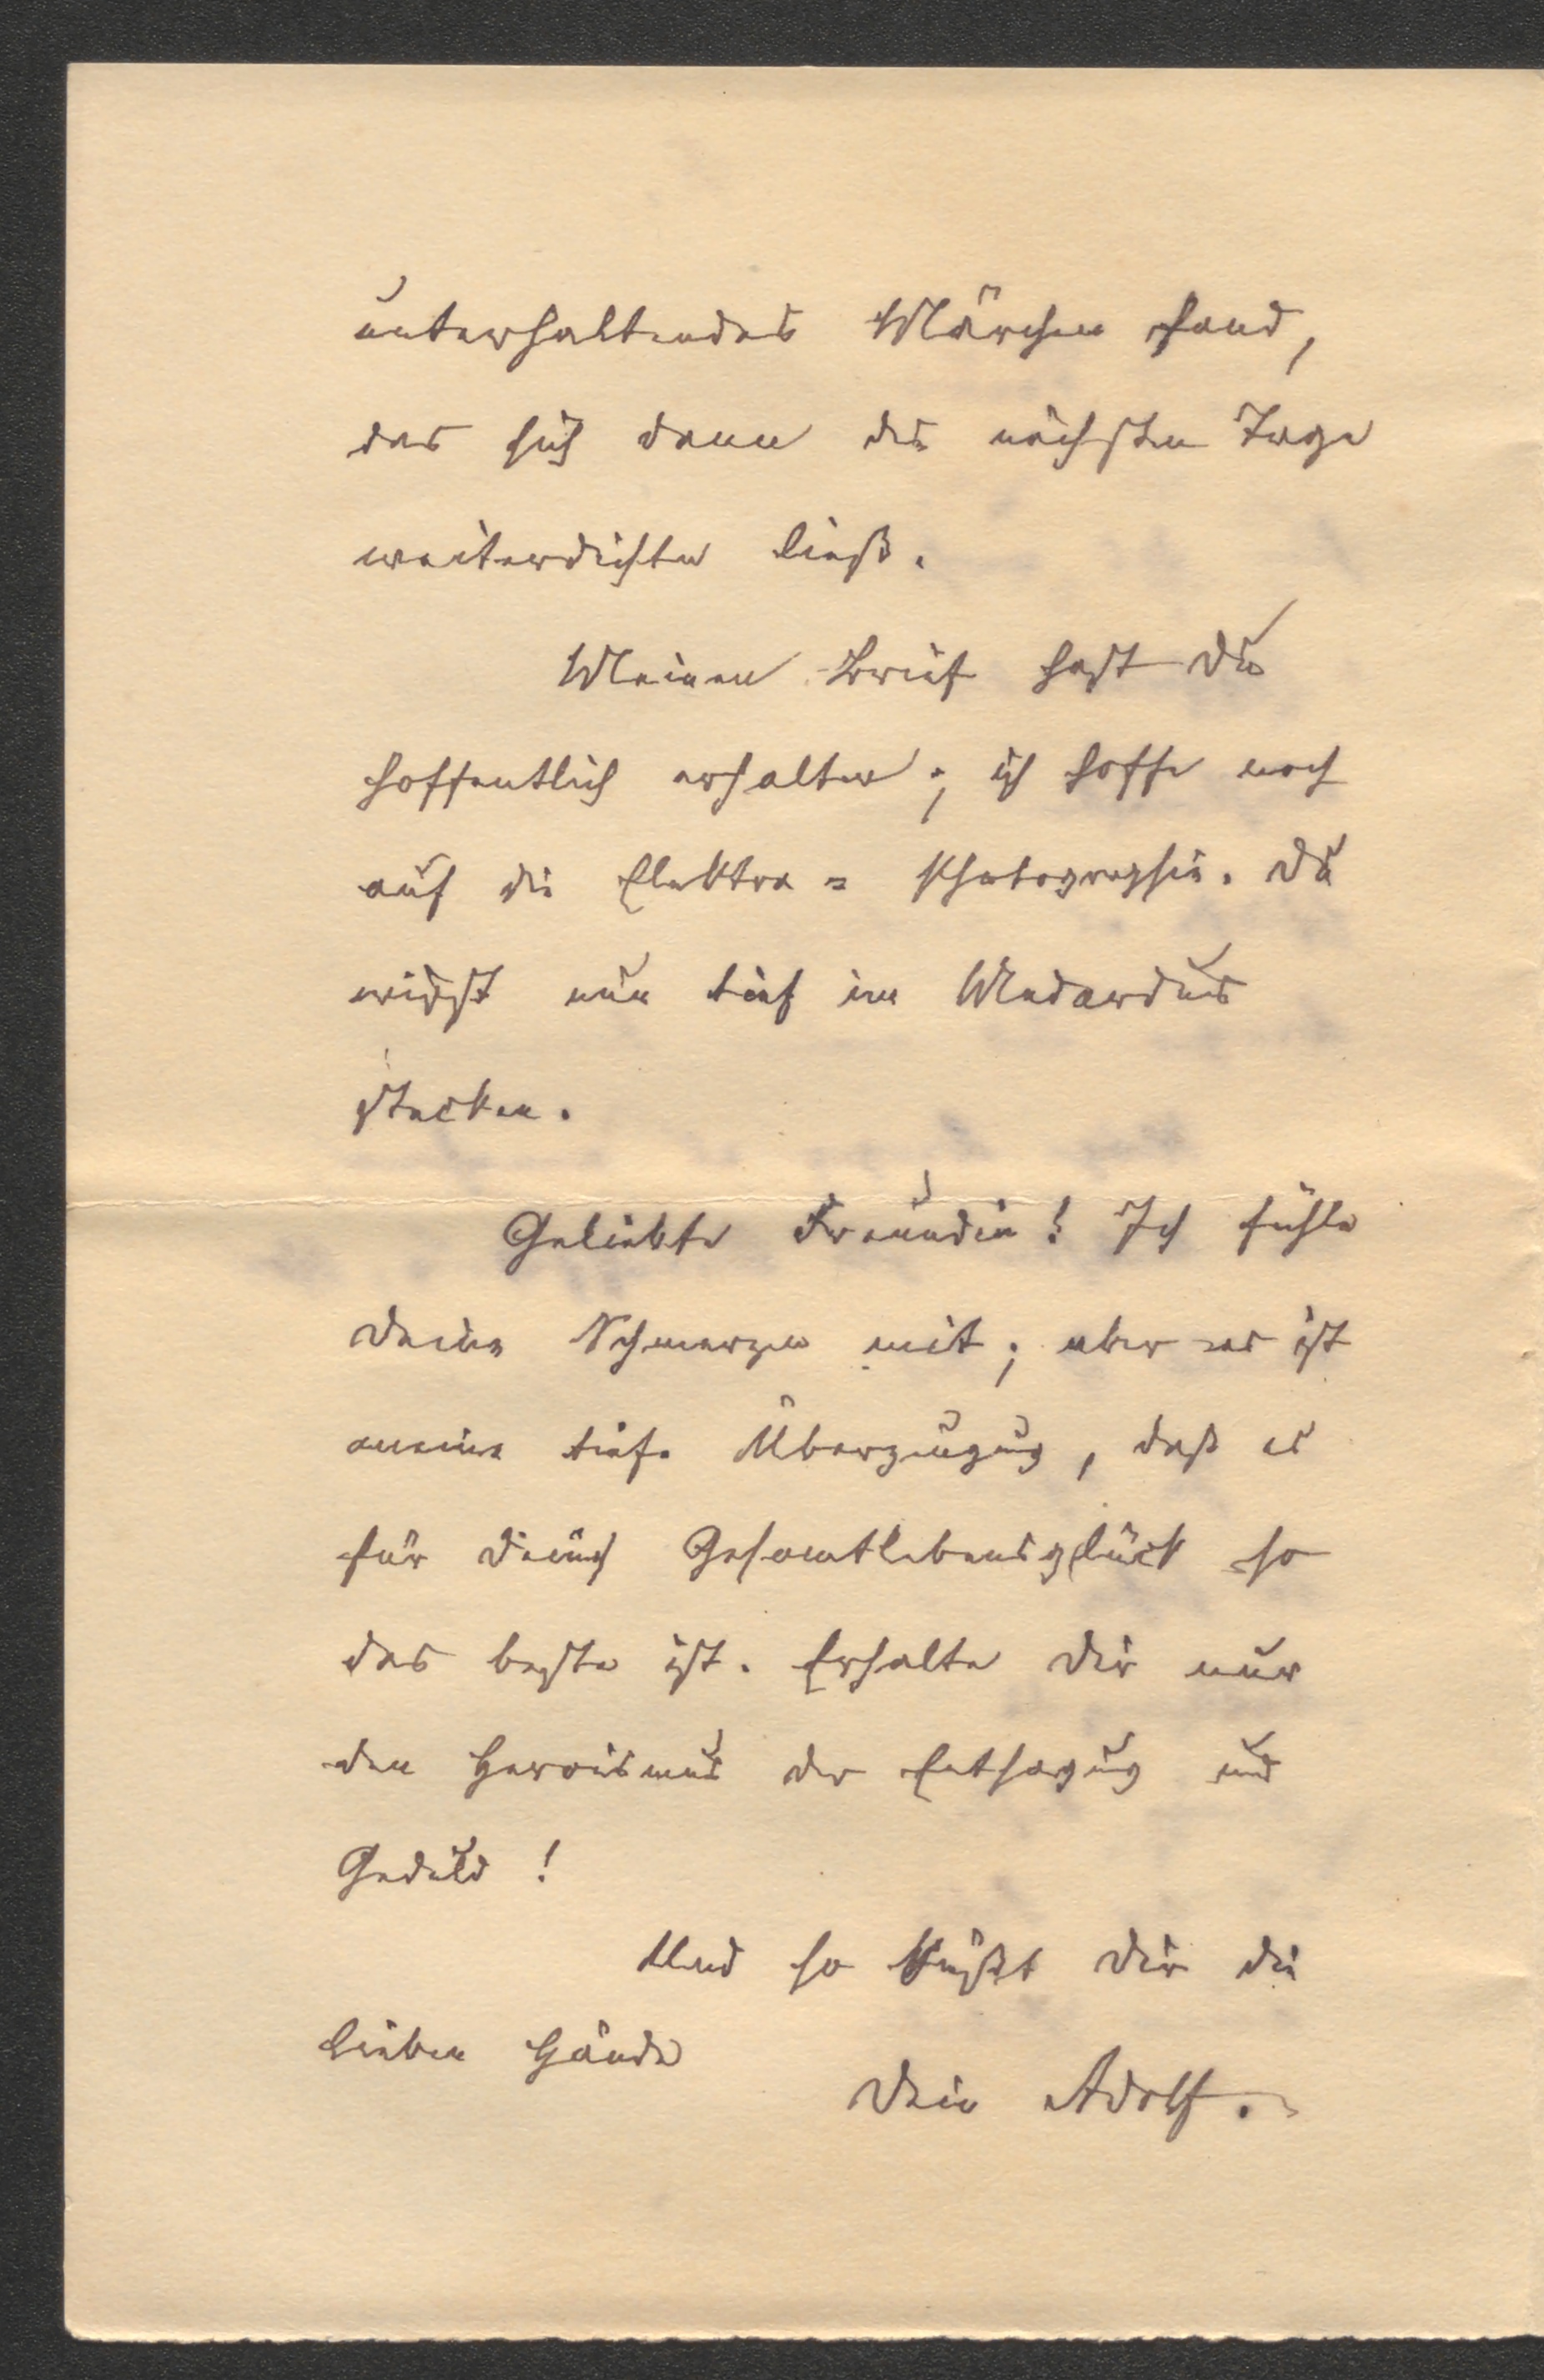 unterhaltendes Märchen fand,
das sich dann die nächsten Tage
weiterdichten ließ.
Meinen Brief hast Du
hoffentlich erhalten; ich hoffe noch
auf die Elektra = Photographie. Du
wirst nun tief im Medardus
stecken.
Geliebte Freundin! Ich fühle
Deine Schmerzen mit; aber es ist
meine tiefe Überzeugung, daß es
für Dein Gesamtlebensglück so
das beste ist. Erhalte Dir nur
den Heroismus der Entsagung und
Geduld!
Und so küßt Dir die
lieben Hände
Dein Adolf.